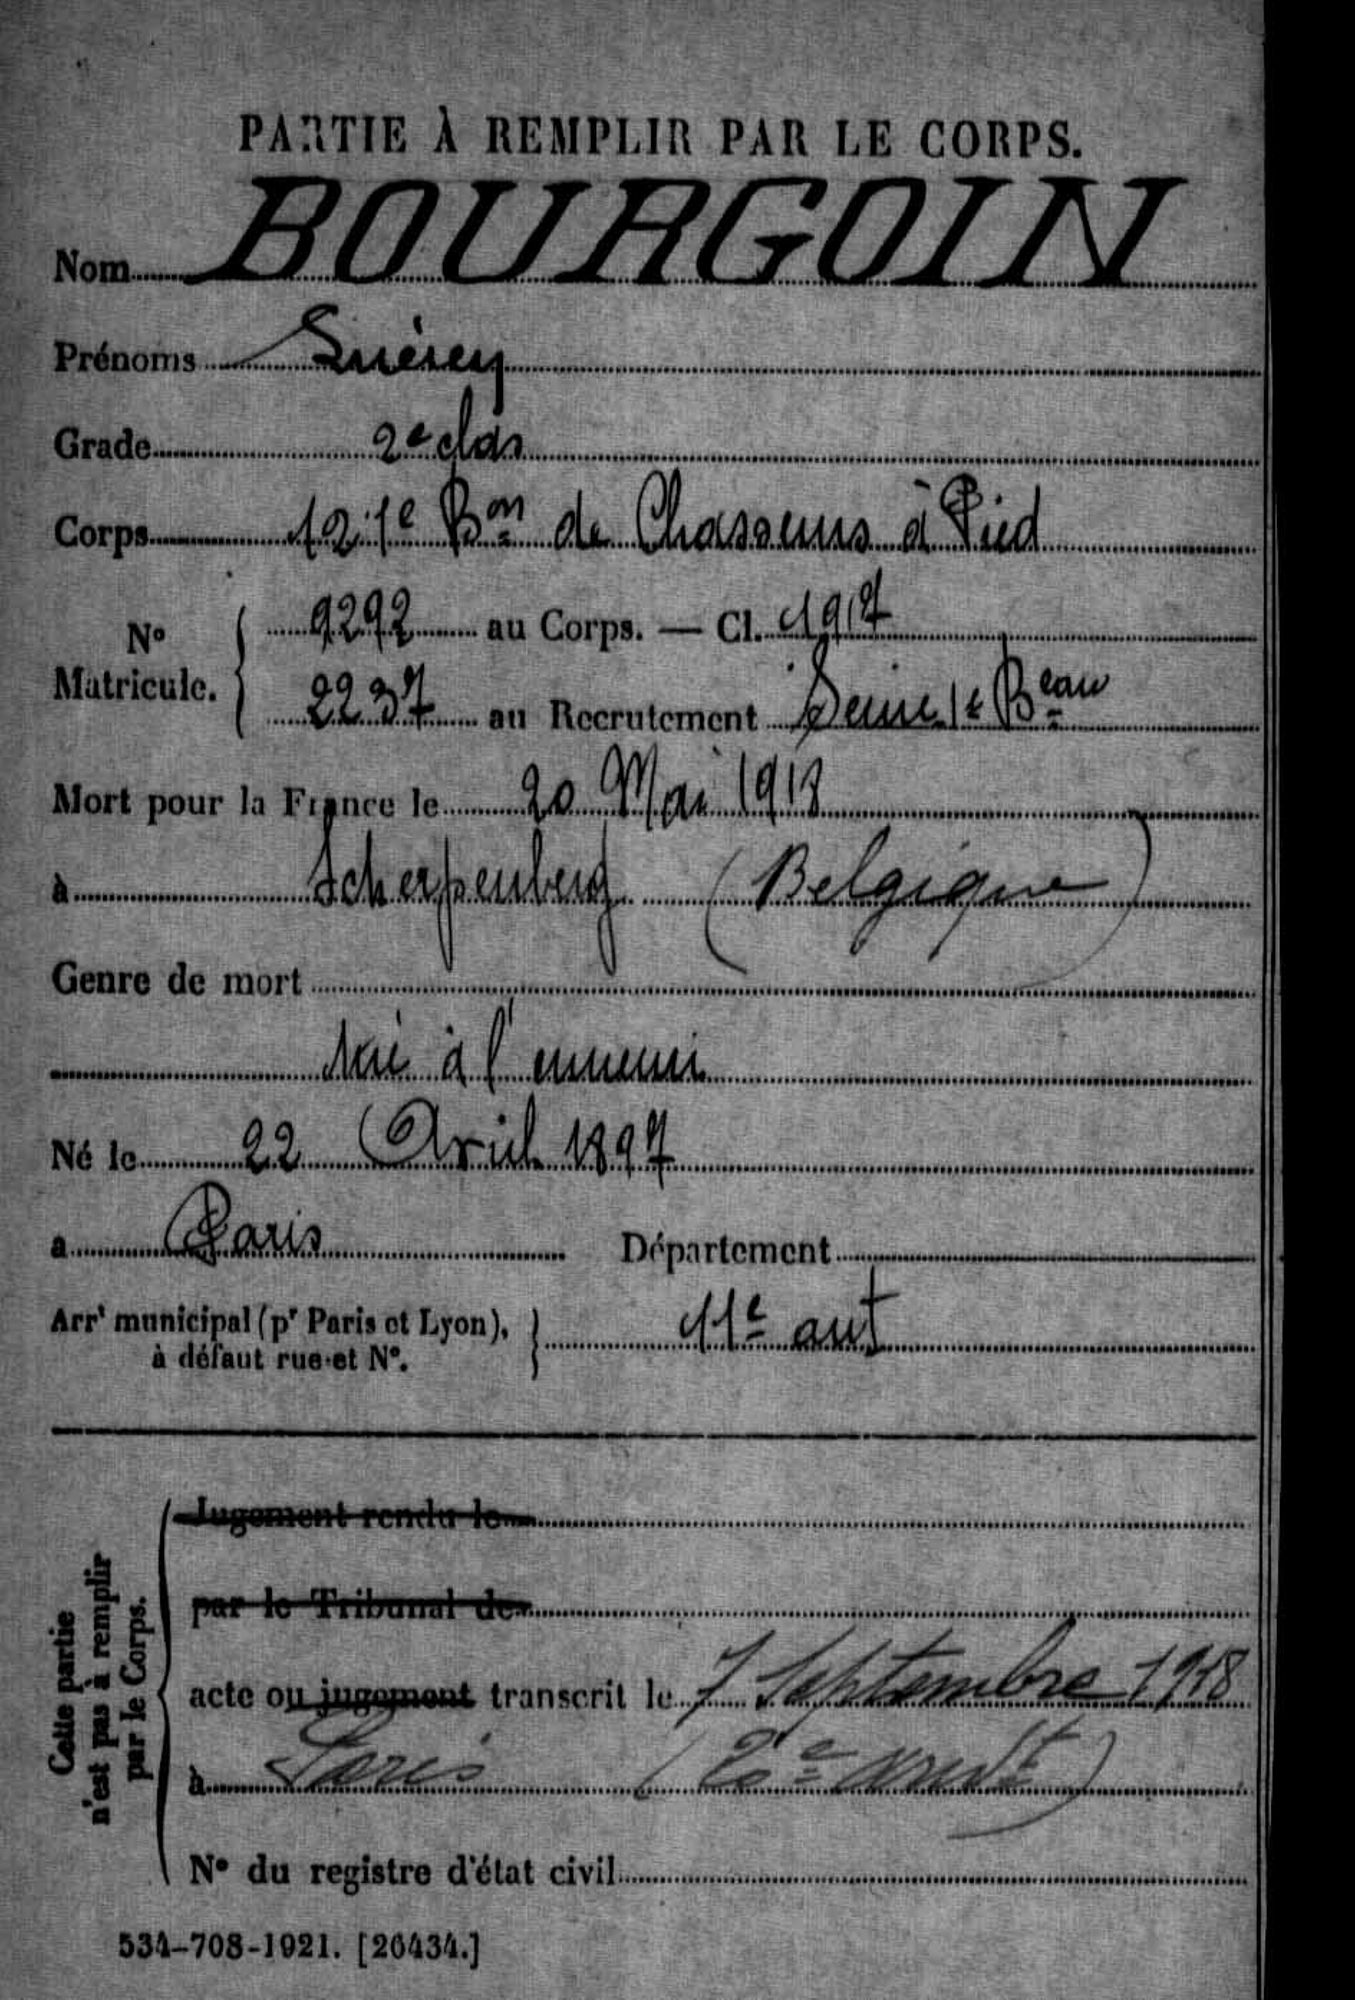 PARTIE À REMPLIR PAR LE CORPS.
Nom BOURGOIN
Prénoms
Grade 2e clas
Corps 121e Bon de Chasseurs à Pied
No Matricule. { 9292 au Corps. — Cl. 1917
2237 au Recrutement Seine 1e Beau
Mort pour la France le 20 Mai 1918
à Scherpenberg (Belgique)
Genre de mort
tué à l'ennemi
Né le 22 Avril 1897
a Paris Département
Arrt municipal (pr Paris et Lyon), à défaut rue et No. } 11e arrt
Cette partie n'est pas à remplir par le Corps.
Jugement rendu le
par le Tribunal de
acte ou jugement transcrit le 7 Septembre 1918
à Paris
No du registre d'état civil
534-708-1921. [26434.]